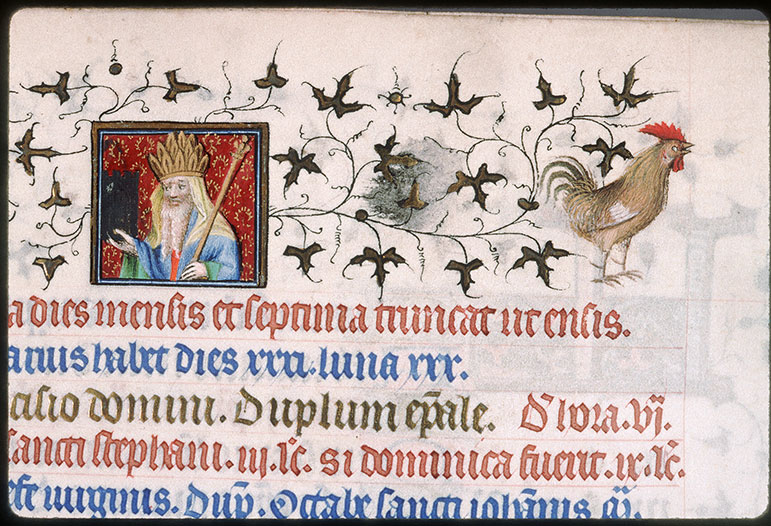 a dies mensis et septima truncat ut ensis.
arius habet dies xxxi. luna xxx.
cisio domini. Duplum ep̄ale. hora. vj.
sancti stephani. iij. lc̄. si dominica fuerit. ix. lc̄.
efe uirginis. Dup̄. Octabe sancti ioh̄annis iij.